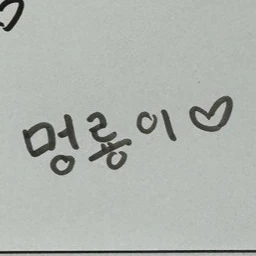 멍룽이♡